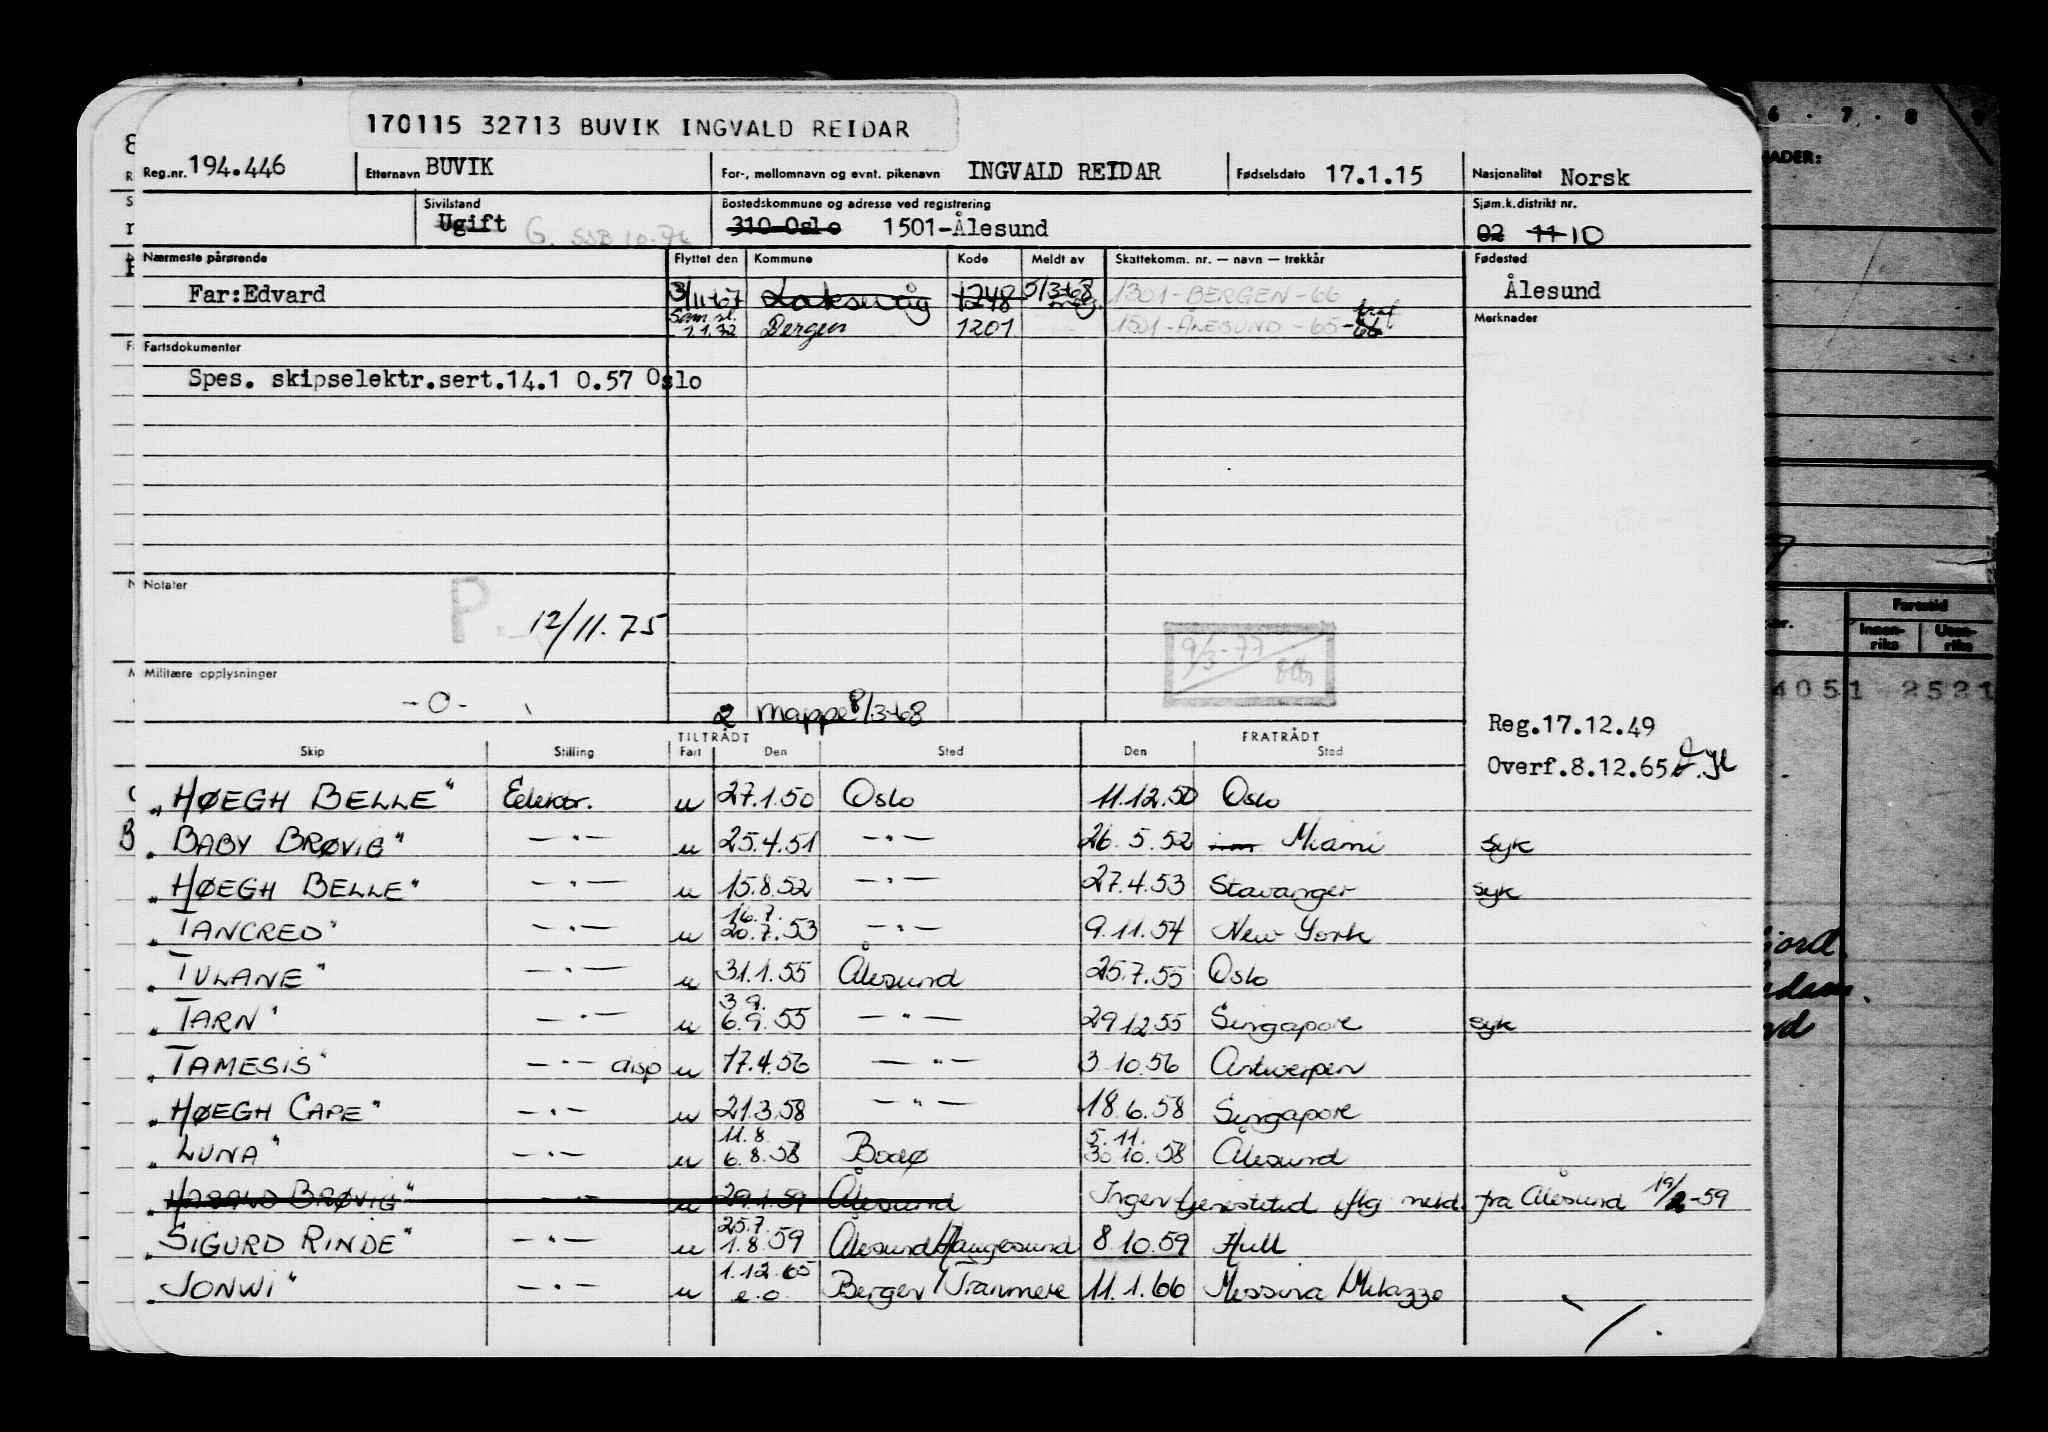 170115 32713 BUVIK INGVALD REIDAR
Reg.nr. 194.446 Etternavn BUVIK For-, mellomnavn og evnt. pikenavn INGVALD REIDAR Fødselsdato 17.1.15 Nasjonalitet Norsk
Sivilstand Ugift G. SSB 10-76 Bostedskommune og adresse ved registrering 310-Oslo 1501-Ålesund Sjøm.k.distrikt nr. 02 11 10
Nærmeste pårørende Flyttet den Kommune Kode Meldt av Skattekomm. nr. — navn — trekkår Fødested
Far:Edvard 3/11-67 Laksevåg 1248 5/3-68 1301-BERGEN-66 Ålesund
Sam.sl. 1.1.72 Bergen 1201 1501-ÅLESUND-65-66 Merknader
Fartsdokumenter
Spes. skipselektr.sert.14.1 0.57 Oslo
Notater
P 12/11.75
9/3-77
Militære opplysninger
-0-
2 mappe 8/3-68
Reg.17.12.49
Overf.8.12.65
TILTRÅDT FRATRÅDT
Skip Stilling Fart Den Sted Den Sted
„HØEGH BELLE" Elektr. u 27.1.50 Oslo 11.12.50 Oslo
„BABY BRØVIG" —"— u 25.4.51 —"— 26.5.52 Miami syk
„HØEGH BELLE" —"— u 15.8.52 —"— 27.4.53 Stavanger syk
„TANCRED" —"— u 16.7. 20.7.53 —"— 9.11.54 New York
„TULANE" —"— u 31.1.55 Ålesund 25.7.55 Oslo
„TARN" —"— u 3.9. 6.9.55 —"— 29.12.55 Singapore syk
„TAMESIS" —"— disp u 17.4.56 —"— 3.10.56 Antwerpen
„HØEGH CAPE" —"— u 21.3.58 —"— 18.6.58 Singapore
„LUNA" —"— u 11.8. 6.8.58 Bodø 5.11. 30.10.58 Ålesund
„HARALD BRØVIG" —"— u 29.1.59 Ålesund Ingen tjenestetid iflg meld. fra Ålesund 19/2-59
„SIGURD RINDE" —"— u 25.7. 1.8.59 Ålesund/Haugesund 8.10.59 Hull
„JONWI" —"— u 1.12.65 e.o. Bergen/Tranmere 11.1.66 Messina/Milazzo
6 . 7 . 8 . 9
Fartstid
Innen-riks Uten-riks
4051 2521